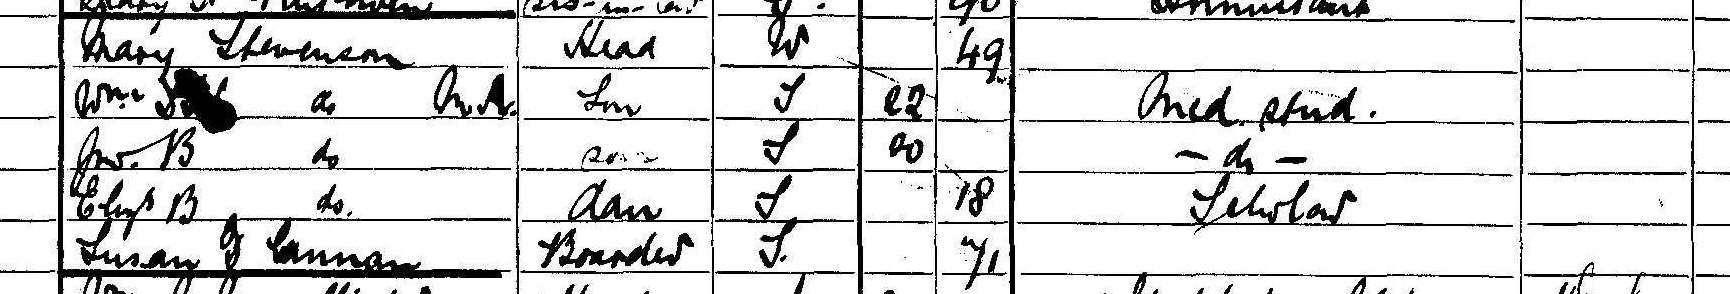 Mary Stevenson Head W 49
Wm. do M.A. Son S 22 Med. stud.
Jno. B do son S 20 - do -
Eliz. B do. dau S 18 Scholar
Susan J Cannan Boarder S. 71